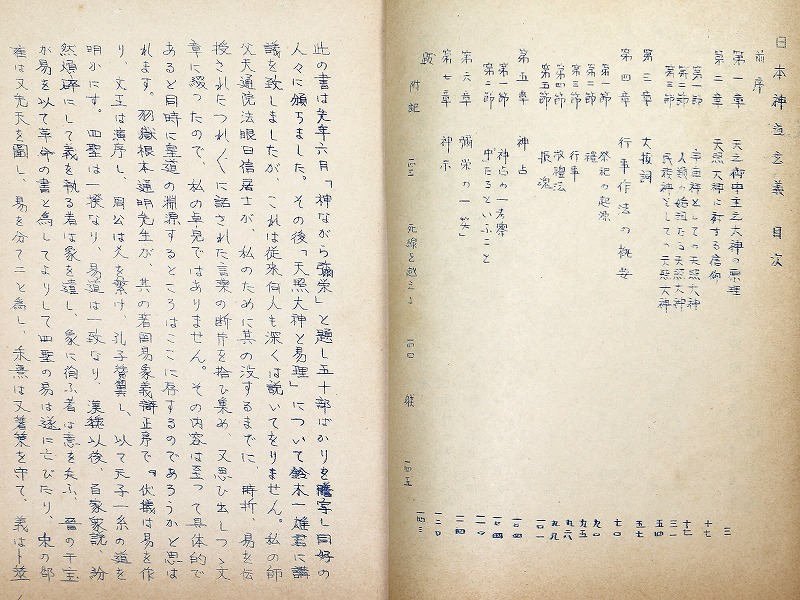 日本神道玄義 目次
前序
第一章 天之御中主之大神の原理 三
第二章 天照大神に対する信仰 十七
第一節 宇宙神としての天照大神 十七
第二節 人類の始祖たる天照大神 三一
第三節 民族神としての天照大神 五四
第三章 大祓詞 五七
第四章 行事作法の概要 七〇
第一節 祭祀の起源 九〇
第二節 禮 九五
第三節 行事 九六
第四節 九八
第五節 振魂 九九
第五章 神占 一〇一
第一節 神占の一考察 一〇四
第二節 中たるといふこと
第六章 彌栄の「一笑」 一二四
第七章 神示 一三〇
跋 一四三
附記 一四三 死線を越えて 一四〇 一四五
此の書は先年六月「神ながら彌栄」と題し五十部ばかりを謄写し同好の
人々に頒ちました。その後「天照大神と易理」について鈴木一雄君に講
議を致しましたが、これは従来何人も深くは説いてをりません。私の師
父天通院法眼日信居士が、私のために其の没するまでに、時折、易を伝
授されたつれ〲に話された言葉の断片を拾ひ集め、又思ひ出しつゝ文
章に綴ったので、私の卓見ではありません。その内容は至って具体的で
あると同時に皇道の淵源するところはここに存するのであろうかと思は
れます。羽嶽根本通明先生が、其の著周易象義辯正序で『伏羲は易を作
り、文王は演序し、周公は爻を繋け、孔子賛翼し、以て天子一系の道を
明かにす。四聖は一揆なり、易道は一致なり、漢魏以後、百家衆説、紛
然煩碎にして義を執る者は象を遺し、象に徇ふ者は意を失ふ、晋の干宝
が易を以て革命の書と為してよりして四聖の易は遂に亡びたり、宋の邵
雍は又先天を圖し、易を分て二と為し、朱熹は又蓍策を守て、義は卜筮